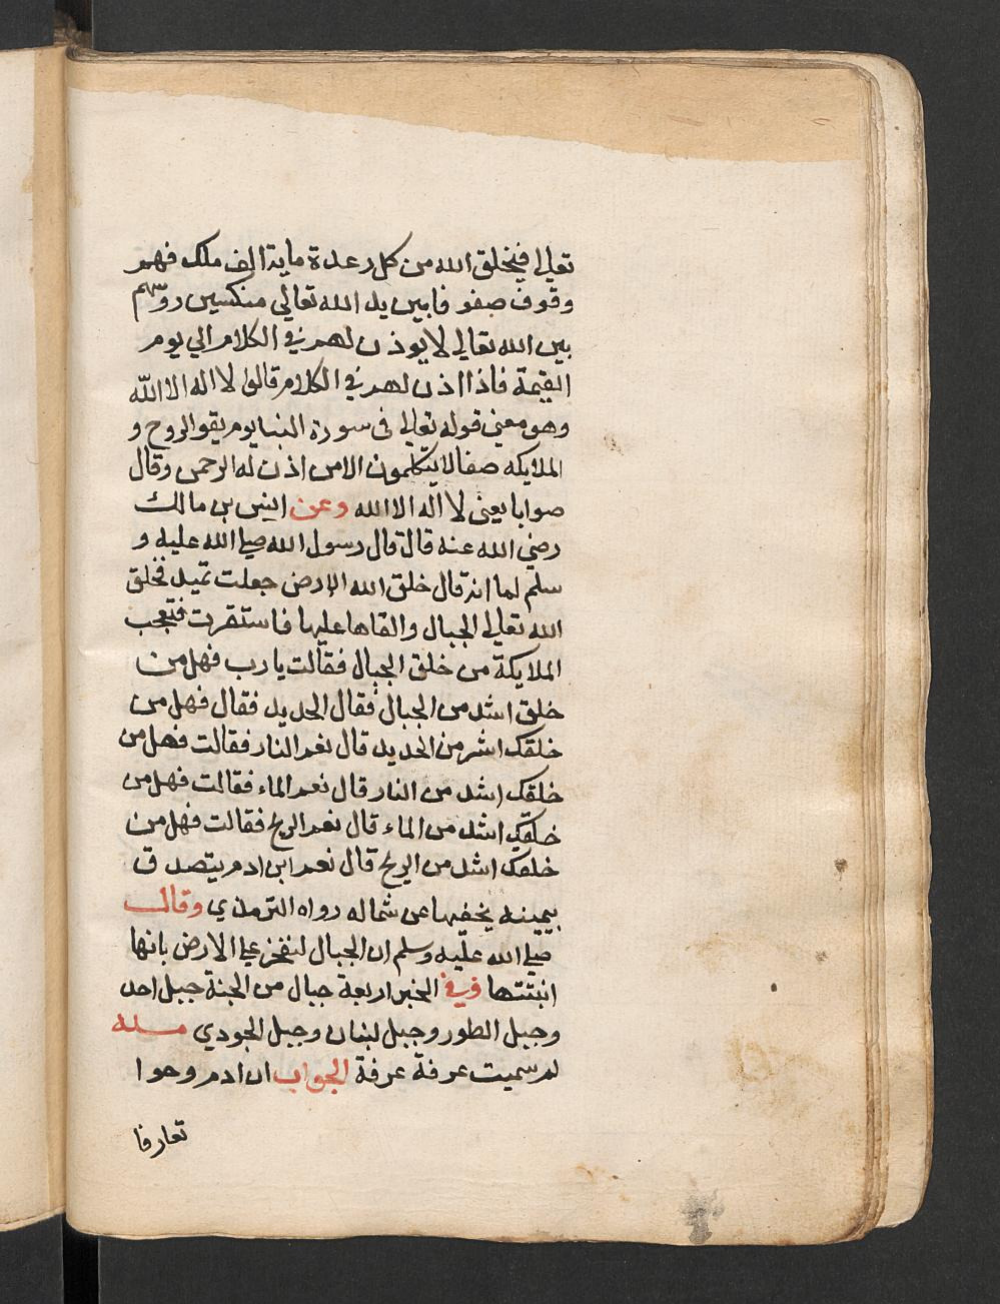 تعالي فيخلق الله من كل رعدة ماية الف ملك فهم
وقوف صفو فابين يد الله تعالي منكسين روسهم
بين الله تعالي لا يوذن لهم في الكلام الي يوم
القيمة فاذا اذن لهم في الكلام قالوا لا اله الا الله
وهو معني قوله تعالي في سورة النبا يوم يقو الروح و
الملايكه صفالا يتكلمون الامن اذن له الرحمن وقال
صوابا يعني لا اله الا الله وعن انيس بن مالك
رضي الله عنه قال قال رسول الله صلي الله عليه و
سلم لما انه قال خلق الله الارض جعلت تميد فخلق
الله تعالي الجبال والقاها عليها فاستقرت فتعجب
الملايكة من خلق الجبال فقالت يا رب فهل من
خلق اشد من الجبال فقال الحديد فقال فهل من
خلقك اشر من الحديد قال نعم النار فقالت فهل من
خلقك اشد من النار قال نعم الماء فقالت فهل من
خلقك اشد من الماء قال نعم الريح فقالت فهل من
خلقك اشد من الريح قال نعم ابن ادم يتصدق
بيمينه يخفيها عن شماله رواه الترمذي وقال
صلي الله عليه وسلم ان الجبال لتفخر علي الارض بانها
انبتتها وفي الخبر اربعة جبال من الجنة جبل احد
وجبل الطور وجبل لبنان وجبل الجودي مسله
لم سميت عرفة عرفة الجواب ان ادم وحوا
تعارفا